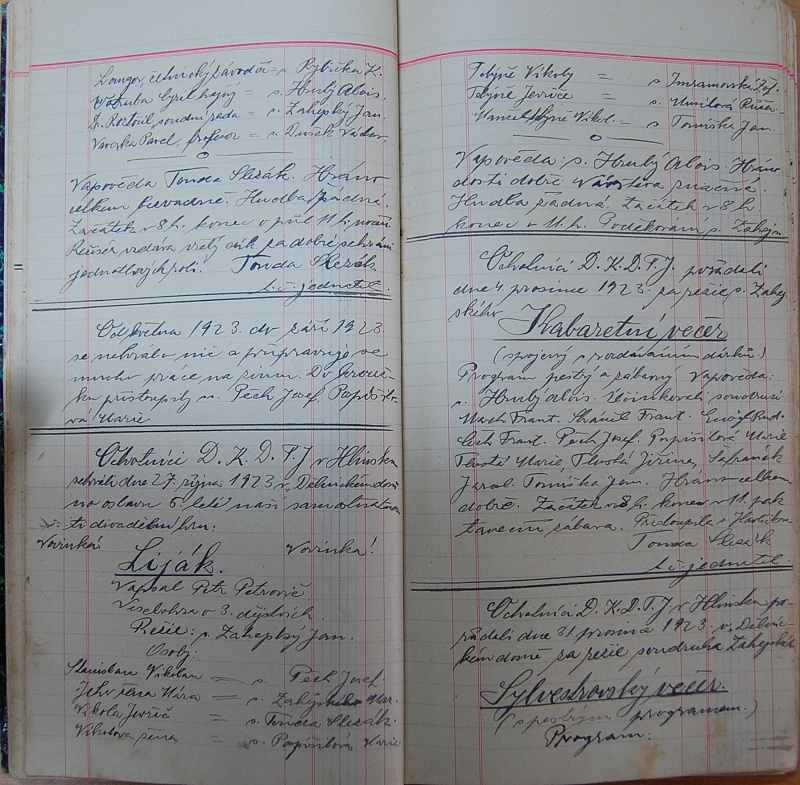 Langer, četnický závodčí = s. Rybička K.
Cyril hajný = s. Hrubý Alois.
Dr. Roztočil, soudní rada = s. Zahejský Jan.
Vavrska Pavel, profesor = s. Dušek Václav.
Napověda Tonda Slezák. Hráno
celkem prvadně. Hudba žádná.
Začátek v 8 h. konec o půl 11 h.
vzdává vřelý dík za dobré sehrání
jednotlivých rolí. Tonda Slezák
t. č. jednatel.
Od května 1923 do září 1923
se nehrálo nic a připravuje se
mnoho práce na zimu. Do
přistoupily s. Pech Josef, Pospíšilo-
vá Marie
Ochotníci D. K. D. T. J. v Hlinsku
sehráli dne 27. října 1923 v Dělnickém domě
na oslavu 5. leté naší samostatnos-
ti divadelní hru:
Novinka! Novinka!
Liják.
Napsal Petr Petrovič
Veselohra o 3. dějstvích
Režie: s. Zahejský Jan.
Osoby:
Stanislav Nikolan = s. Pech Josef.
Jeho žena Mára = s. Zahejská Mar.
Nikola Jevřič = s. Tonda Slezák.
Nikolova žena = s. Pospíšilová Marie
Nikoly = s. Jmramovská Žof.
Jevřiče = s. Růže.
Nikol. = s. Tomiška Jan.
Napověda: s. Hrubý Alois. Hráno
dosti dobře. Návštěva značná.
Hudba žádná. Začátek v 8 h.
konec v 11. h. Poděkování s. Zahejs.
Ochotníci D. K. D. T. J. pořádali
dne 4 prosince 1923 za režie s. Zahej-
ského
Kabaretní večer
(spojený s rozdáváním dárků.)
Program pestrý a zábavný Napověda:
s. Hrubý Alois. Účinkovali soudruzi
Mach Frant. Frant.
Frant. Pech Josef. Pospíšilová Marie
Tlustá Marie, Tlustá Jiřina, Šafránek
Jarol. Tomiška Jan. Hráno celkem
dobře. Začátek v 8 h. konec v 11. pak
taneční zábava. Přistoupila s.
Tonda Slezák
t. č. jednatel.
Ochotníci D. K. D. T. J. v Hlinsku po-
řádali dne 31 prosince 1923 v Dělnic-
kém domě za režie soudruha Zahejského
Sylvestrovský večer.
(s pestrým programem.)
Program: